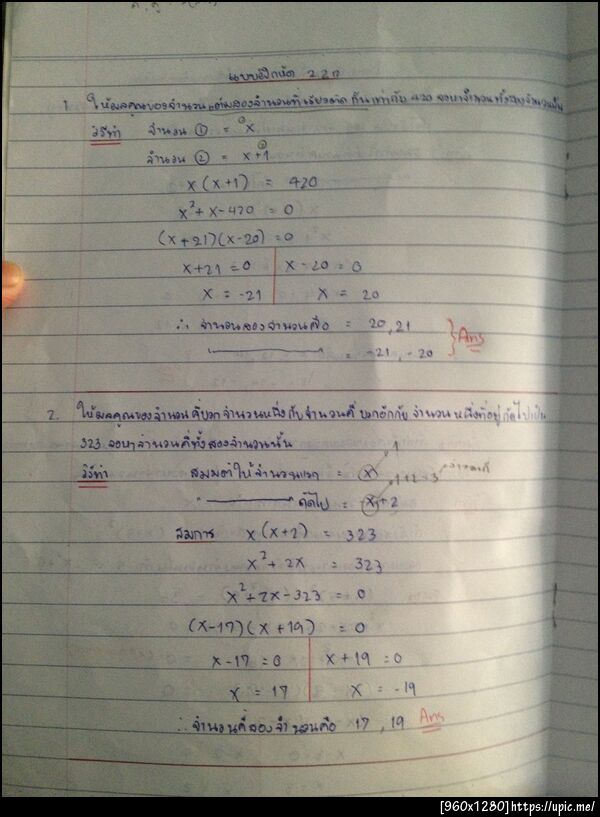 แบบฝึกหัด 2.2 ก
1. ให้ผลคูณของจำนวนเต็มสองจำนวนที่เรียงติดกันเท่ากับ 420 จงหาจำนวนทั้งสองจำนวนนั้น
วิธีทำ จำนวน ① = x
จำนวน ② = x+1
x(x+1) = 420
x²+x-420 = 0
(x+21)(x-20) = 0
x+21 = 0 x-20 = 0
x = -21 x = 20
∴ จำนวนสองจำนวนคือ = 20, 21
= -21, -20
Ans
2. ให้ผลคูณของจำนวนคี่บวกจำนวนหนึ่งกับจำนวนคี่บวกอีกจำนวนหนึ่งที่อยู่ถัดไปเป็น
323 จงหาจำนวนคี่ทั้งสองจำนวนนั้น
1
วิธีทำ สมมติให้จำนวนแรก = x
1+2=3
" ถัดไป = x+2
สมการ x(x+2) = 323
x²+2x = 323
x²+2x-323 = 0
(x-17)(x+19) = 0
x-17 = 0 x+19 = 0
x = 17 x = -19
∴ จำนวนคี่สองจำนวนคือ 17, 19 Ans
[960x1280]https://upic.me/